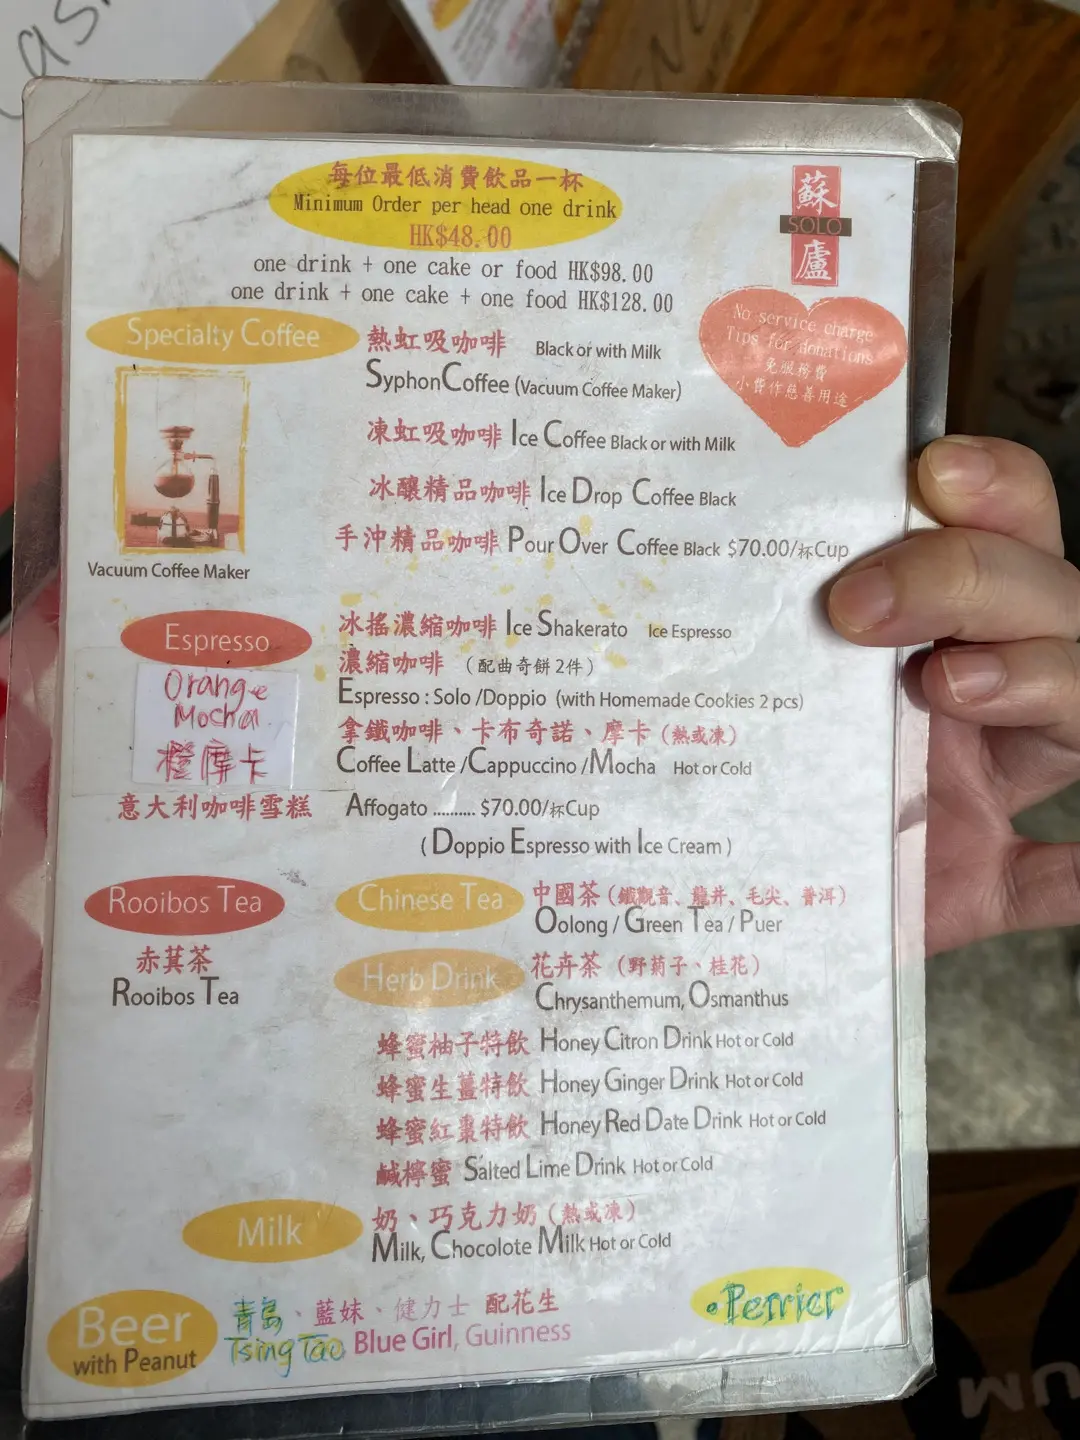 每位最低消費飲品一杯
Minimum Order per head one drink
HK$48.00
one drink + one cake or food HK$98.00
one drink + one cake + one food HK$128.00
蘇
SOLO
廬
No service charge
Tips for donations
免服務費
小費作慈善用途
Specialty Coffee
熱虹吸咖啡 Black or with Milk
SyphonCoffee (Vacuum Coffee Maker)
凍虹吸咖啡 Ice Coffee Black or with Milk
冰釀精品咖啡 Ice Drop Coffee Black
手沖精品咖啡 Pour Over Coffee Black $70.00/杯Cup
Vacuum Coffee Maker
Espresso
冰搖濃縮咖啡 Ice Shakerato Ice Espresso
濃縮咖啡 (配曲奇餅2件)
Espresso : Solo /Doppio (with Homemade Cookies 2 pcs)
Orange
Mocha
橙摩卡
拿鐵咖啡、卡布奇諾、摩卡(熱或凍)
Coffee Latte /Cappuccino /Mocha Hot or Cold
意大利咖啡雪糕 Affogato .......... $70.00/杯Cup
( Doppio Espresso with Ice Cream )
Rooibos Tea
赤萁茶
Rooibos Tea
Chinese Tea
中國茶(鐵觀音、龍井、毛尖、普洱)
Oolong / Green Tea / Puer
Herb Drink
花卉茶 (野菊子、桂花)
Chrysanthemum, Osmanthus
蜂蜜柚子特飲 Honey Citron Drink Hot or Cold
蜂蜜生薑特飲 Honey Ginger Drink Hot or Cold
蜂蜜紅棗特飲 Honey Red Date Drink Hot or Cold
鹹檸蜜 Salted Lime Drink Hot or Cold
Milk
奶、巧克力奶(熱或凍)
Milk, Chocolote Milk Hot or Cold
Beer
with Peanut
青島、藍妹、健力士 配花生
TsingTao Blue Girl, Guinness
Perrier
UM